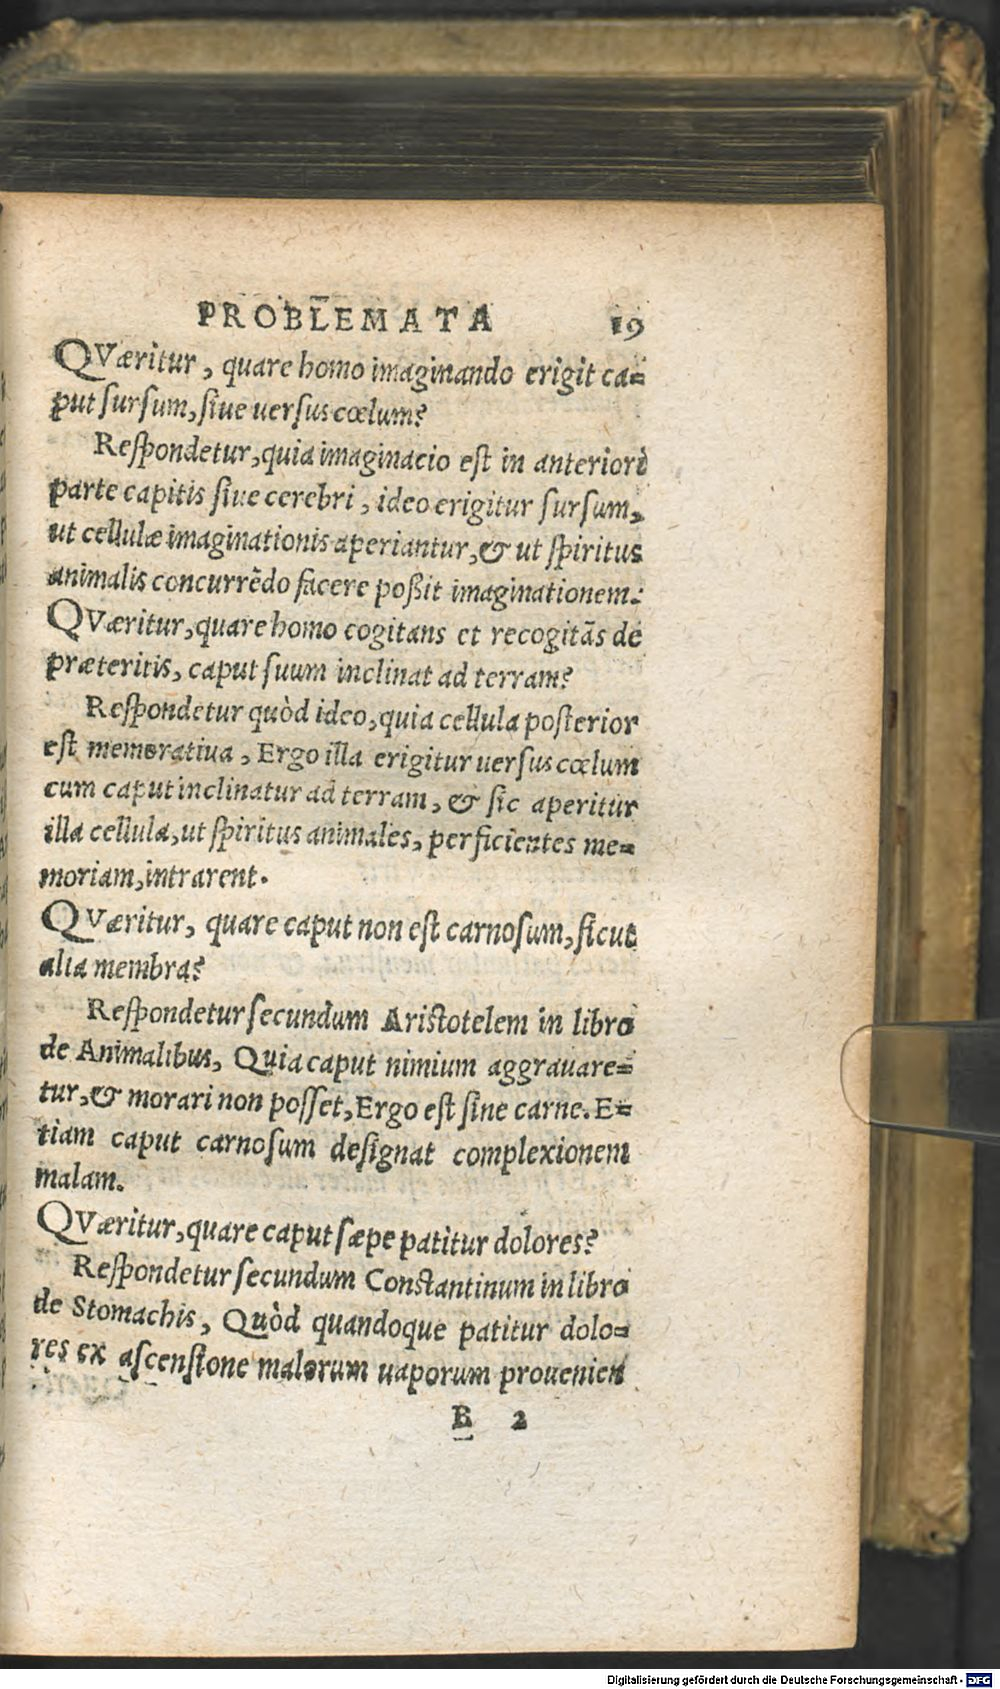 PROBLEMATA 19
QVæritur, quare homo imaginando erigit ca=
put ſurſum, ſiue uerſus cœlum?
Reſpondetur, quia imaginacio eſt in anteriori
parte capitis ſiue cerebri, ideo erigitur ſurſum,
ut cellulæ imaginationis aperiantur, & ut ſpiritus
animalis concurrēdo facere poßit imaginationem.
QVæritur, quare homo cogitans et recogitãs de
præteritis, caput ſuum inclinat ad terram?
Reſpondetur quòd ideo, quia cellula poſterior
eſt memoratiua, Ergo illa erigitur uerſus cœlum
cum caput inclinatur ad terram, & ſic aperitur
illa cellula, ut ſpiritus animales, perficientes me=
moriam, intrarent.
QVæritur, quare caput non eſt carnoſum, ſicut
alia membra?
Reſpondetur ſecundum Ariſtotelem in libro
de Animalibus, Quia caput nimium aggrauare=
tur, & morari non poſſet, Ergo eſt ſine carne. E=
tiam caput carnoſum deſignat complexionem
malam.
QVæritur, quare caput ſæpe patitur dolores?
Reſpondetur ſecundum Conſtantinum in libro
de Stomachis, Quòd quandoque patitur dolo=
res ex aſcenſione malorum uaporum prouenien
B 2
Digitalisierung gefördert durch die Deutsche Forschungsgemeinschaft - DFG